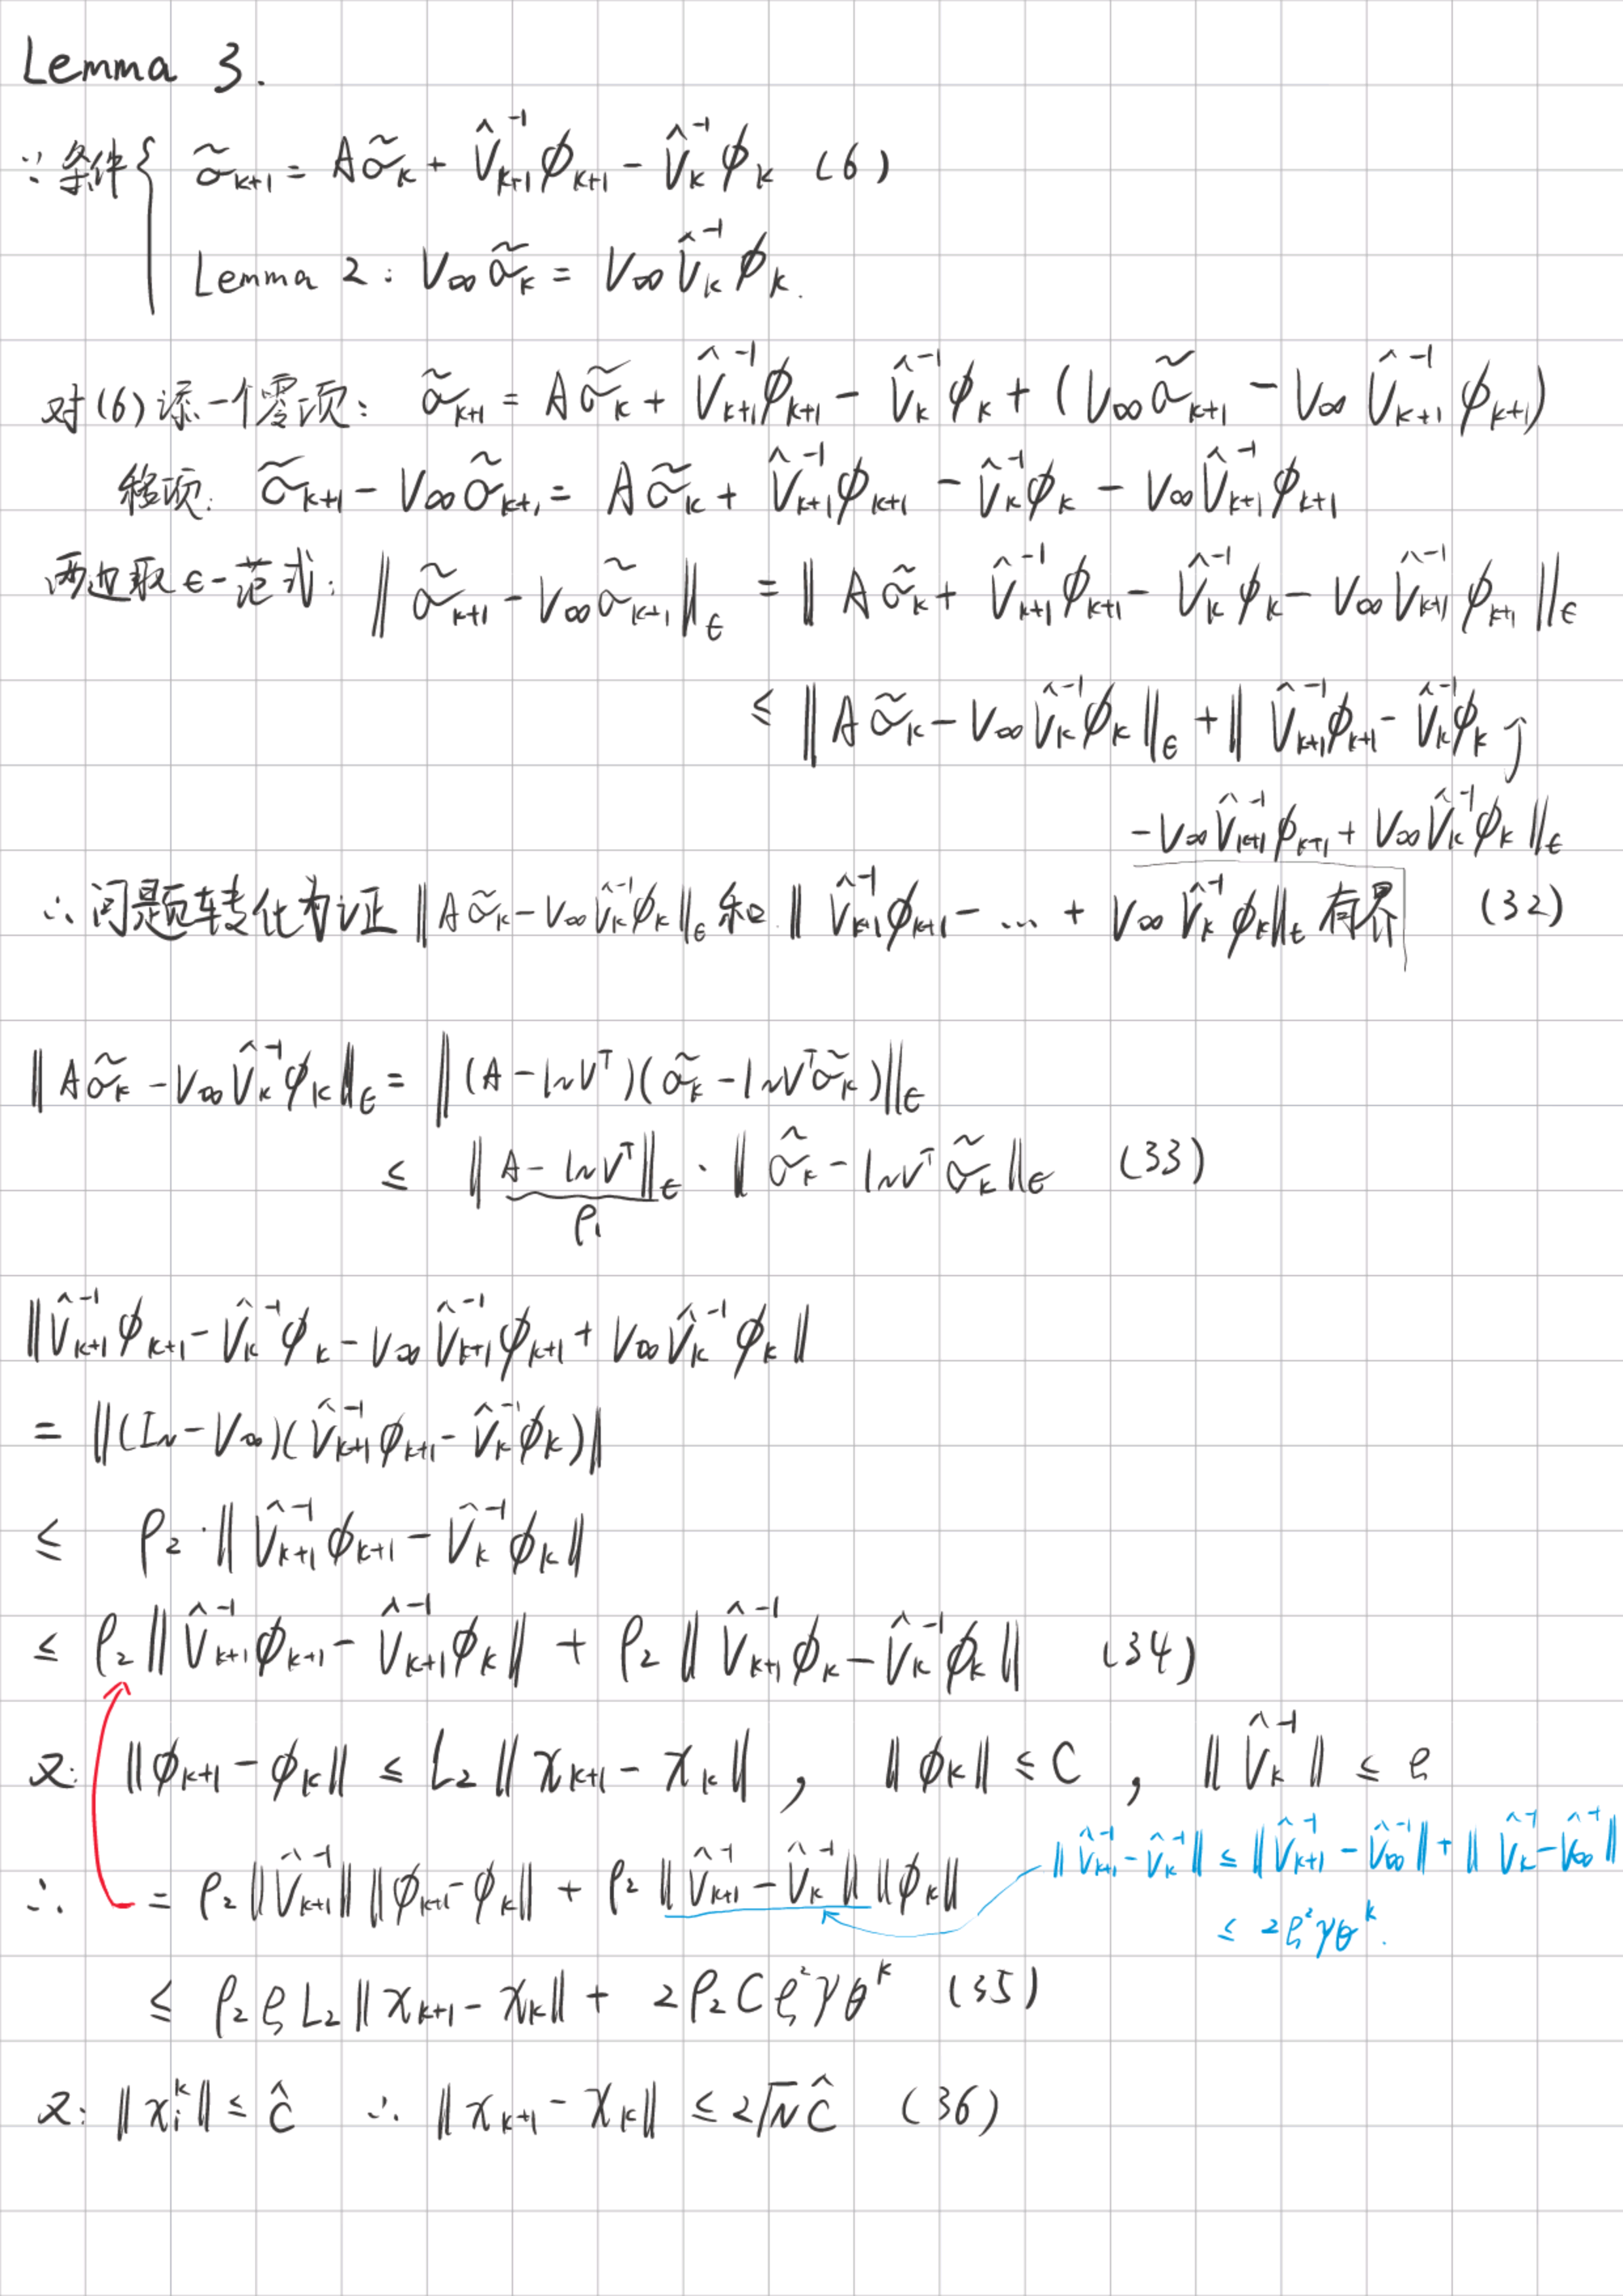 Lemma 3.
∵ 条件 { σ̃ₖ₊₁ = Aσ̃ₖ + V̂ₖ₊₁⁻¹ϕₖ₊₁ − V̂ₖ⁻¹ϕₖ (6)
Lemma 2: V∞σ̃ₖ = V∞V̂ₖ⁻¹ϕₖ.
对(6)添一个零项: σ̃ₖ₊₁ = Aσ̃ₖ + V̂ₖ₊₁⁻¹ϕₖ₊₁ − V̂ₖ⁻¹ϕₖ + (V∞σ̃ₖ₊₁ − V∞V̂ₖ₊₁⁻¹ϕₖ₊₁)
移项: σ̃ₖ₊₁ − V∞σ̃ₖ₊₁ = Aσ̃ₖ + V̂ₖ₊₁⁻¹ϕₖ₊₁ − V̂ₖ⁻¹ϕₖ − V∞V̂ₖ₊₁⁻¹ϕₖ₊₁
两边取ϵ-范式: ‖σ̃ₖ₊₁ − V∞σ̃ₖ₊₁‖_ϵ = ‖Aσ̃ₖ + V̂ₖ₊₁⁻¹ϕₖ₊₁ − V̂ₖ⁻¹ϕₖ − V∞V̂ₖ₊₁⁻¹ϕₖ₊₁‖_ϵ
≤ ‖Aσ̃ₖ − V∞V̂ₖ⁻¹ϕₖ‖_ϵ + ‖V̂ₖ₊₁⁻¹ϕₖ₊₁ − V̂ₖ⁻¹ϕₖ
− V∞V̂ₖ₊₁⁻¹ϕₖ₊₁ + V∞V̂ₖ⁻¹ϕₖ‖_ϵ
∴ 问题转化为证 ‖Aσ̃ₖ − V∞V̂ₖ⁻¹ϕₖ‖_ϵ 和 ‖V̂ₖ₊₁⁻¹ϕₖ₊₁ − … + V∞V̂ₖ⁻¹ϕₖ‖_ϵ 有界 (32)
‖Aσ̃ₖ − V∞V̂ₖ⁻¹ϕₖ‖_ϵ = ‖(A − 1_N Vᵀ)(σ̃ₖ − 1_N Vᵀσ̃ₖ)‖_ϵ
≤ ‖A − 1_N Vᵀ‖_ϵ · ‖σ̃ₖ − 1_N Vᵀσ̃ₖ‖_ϵ (33)
ρ₁
‖V̂ₖ₊₁⁻¹ϕₖ₊₁ − V̂ₖ⁻¹ϕₖ − V∞V̂ₖ₊₁⁻¹ϕₖ₊₁ + V∞V̂ₖ⁻¹ϕₖ‖
= ‖(I_N − V∞)(V̂ₖ₊₁⁻¹ϕₖ₊₁ − V̂ₖ⁻¹ϕₖ)‖
≤ ρ₂ · ‖V̂ₖ₊₁⁻¹ϕₖ₊₁ − V̂ₖ⁻¹ϕₖ‖
≤ ρ₂‖V̂ₖ₊₁⁻¹ϕₖ₊₁ − V̂ₖ₊₁⁻¹ϕₖ‖ + ρ₂‖V̂ₖ₊₁⁻¹ϕₖ − V̂ₖ⁻¹ϕₖ‖ (34)
又: ‖ϕₖ₊₁ − ϕₖ‖ ≤ L₂‖xₖ₊₁ − xₖ‖, ‖ϕₖ‖ ≤ C, ‖V̂ₖ⁻¹‖ ≤ ξ
‖V̂ₖ₊₁⁻¹ − V̂ₖ⁻¹‖ ≤ ‖V̂ₖ₊₁⁻¹ − V̂∞⁻¹‖ + ‖V̂ₖ⁻¹ − V̂∞⁻¹‖
∴ = ρ₂‖V̂ₖ₊₁⁻¹‖‖ϕₖ₊₁ − ϕₖ‖ + ρ₂‖V̂ₖ₊₁⁻¹ − V̂ₖ⁻¹‖‖ϕₖ‖
≤ 2ξ²γθᵏ.
≤ ρ₂ξL₂‖xₖ₊₁ − xₖ‖ + 2ρ₂Cξ²γθᵏ (35)
又: ‖xᵢᵏ‖ ≤ Ĉ ∴ ‖xₖ₊₁ − xₖ‖ ≤ 2√N Ĉ (36)